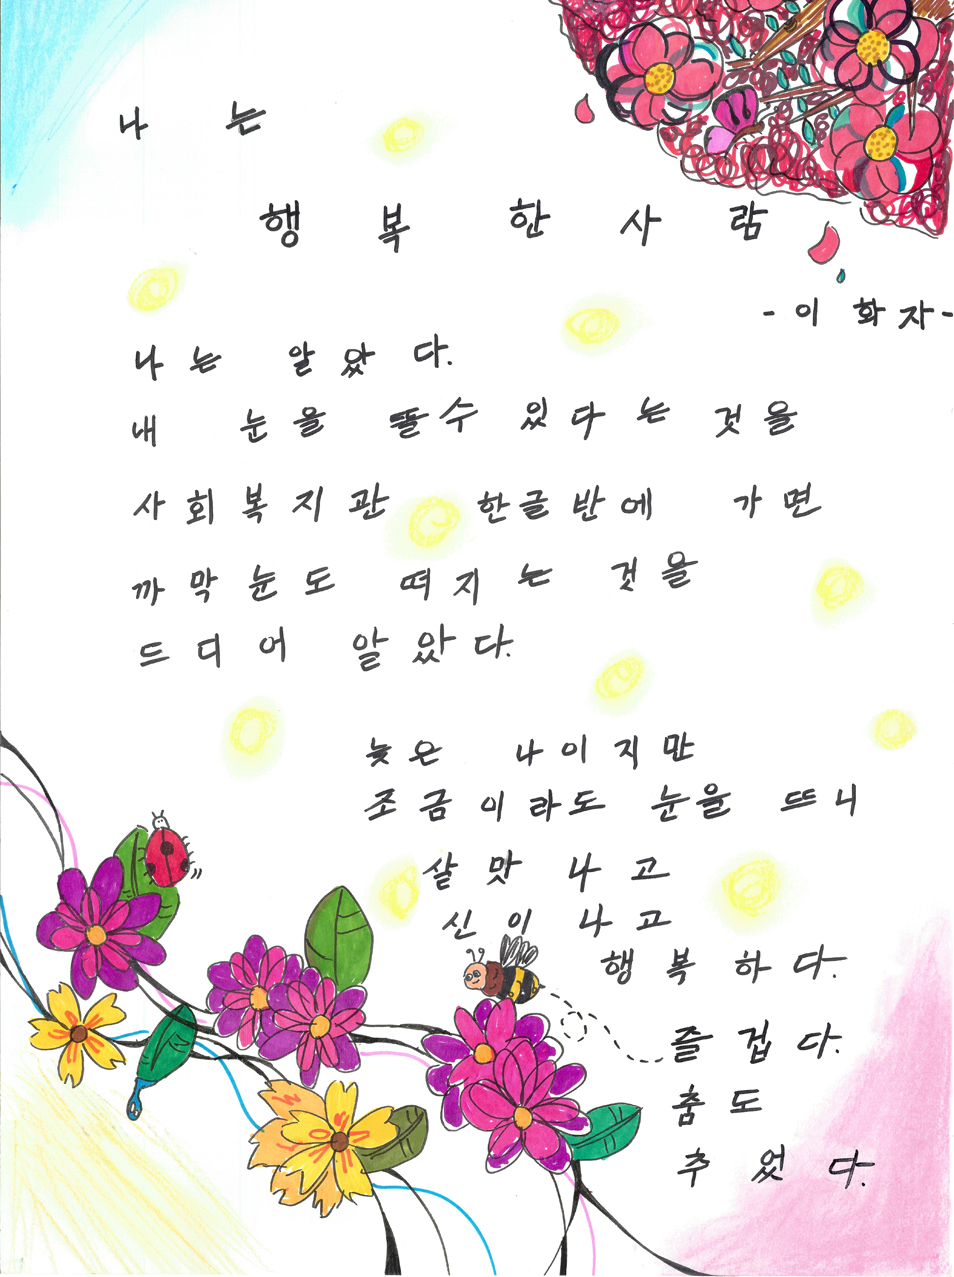 나는
행복한사람
-이화자-
나는 알았다.
내 눈을 뜰수 있다는 것을
사회복지관 한글반에 가면
까막눈도 떠지는 것을
드디어 알았다.
늦은 나이지만
조금이라도 눈을 뜨니
살맛 나고
신이 나고
행복하다.
즐겁다.
춤도
추었다.